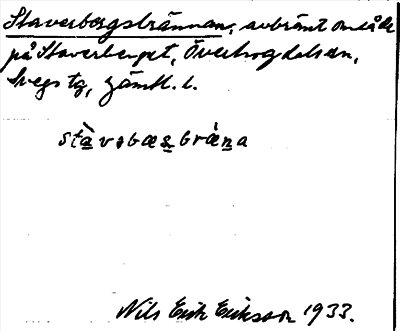 Staverbergsbrännan, avbränt område
på Staverberget, Överhogdalssn,
Svegs tg, Jämtl. l.
stàvəbæsbræ̀na
Nils Erik Eriksson 1933.